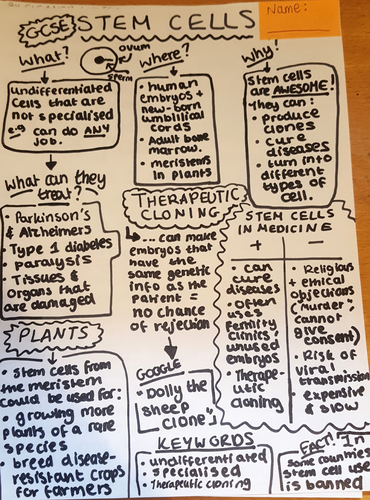 Name:
GCSE STEM CELLS
What?
undifferentiated
cells that are
not specialised
e.g can do ANY
job.
ovum
sperm
Where?
• human
embryos +
new-born
umbilical
cords
• Adult bone
marrow.
• meristems
in plants
Why?
Stem cells
are AWESOME!
They can:
• Produce
clones
• cure
diseases
• turn into
different
types of
cell.
What can they
treat?
• Parkinson's
& Alzheimers
• Type 1 diabetes
• paralysis
• Tissues &
Organs that
are damaged
THERAPEUTIC
CLONING
... can make
embryos that
have the
same genetic
info as the
patient =
no chance
of rejection
GOOGLE
"Dolly the
sheep
clone"
STEM CELLS
IN MEDICINE
+
• can
cure
diseases
• often
uses
Fertility
clinics
unused
embryos
• Therape-
utic
cloning
-
• Religious
+ ethical
objections
("Murder":
cannot
give
consent)
• Risk of
viral
transmission
• expensive
& slow
PLANTS
• Stem cells from
the meristem
could be used for:
• growing more
plants of a rare
species
• breed disease-
resistant crops
for farmers
KEYWORDS
• undifferentiated
• specialised
• Therapeutic cloning
FACT! In
some countries
stem cell use
is banned